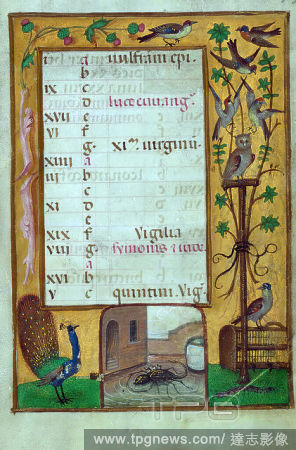 g wulfrani epi.
b
ix c
d luce euuang.
xvii e
vi f
g xi᷎ virginū
xiiii a
iii b
c
xi d
e
xix f Vigilia
viii g Symonis et iude.
a
xvi b
v c quintini. Vig.
TPG
www.tpgnews.com/達志影像